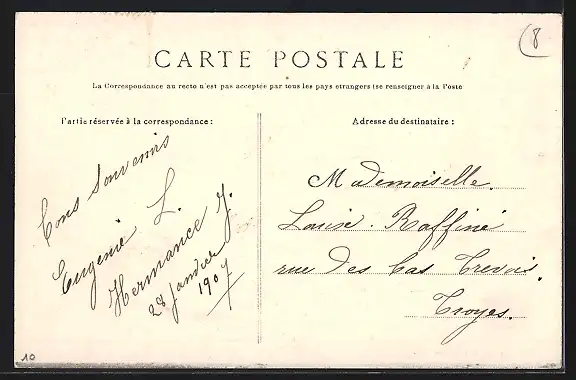 8
CARTE POSTALE
La Correspondance au recto n'est pas acceptée par tous les pays étrangers (se renseigner à la Poste
Partie réservée à la correspondance :
Bons Souvenirs
Eugénie L.
Hermance J.
28 Janvier
1907
Adresse du destinataire :
Mademoiselle
Louise Raffiné
rue des bas Trevois.
Troyes.
10